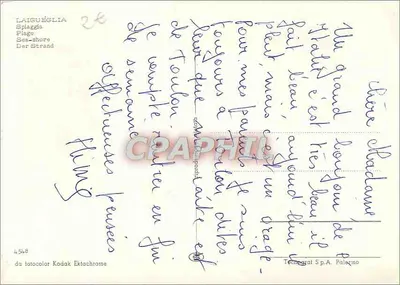 LAIGUEGLIA
Spiaggia
Plage
Sea-shore
Der Strand
2€
Chère Madame
Un grand bonjour de l'
Italie c'est très beau il
fait beau aujourd'hui il
pleut mais c'est un orage-
Pour mes parents je suis
toujours à Toulon dites
leur que ma
de Toulon
Je compte rentrer en fin
de semaine
affectueuses pensées
CPAPHIL
4548
da fotocolor Kodak Ektachrome
Tecnograf S.p.A. Palermo